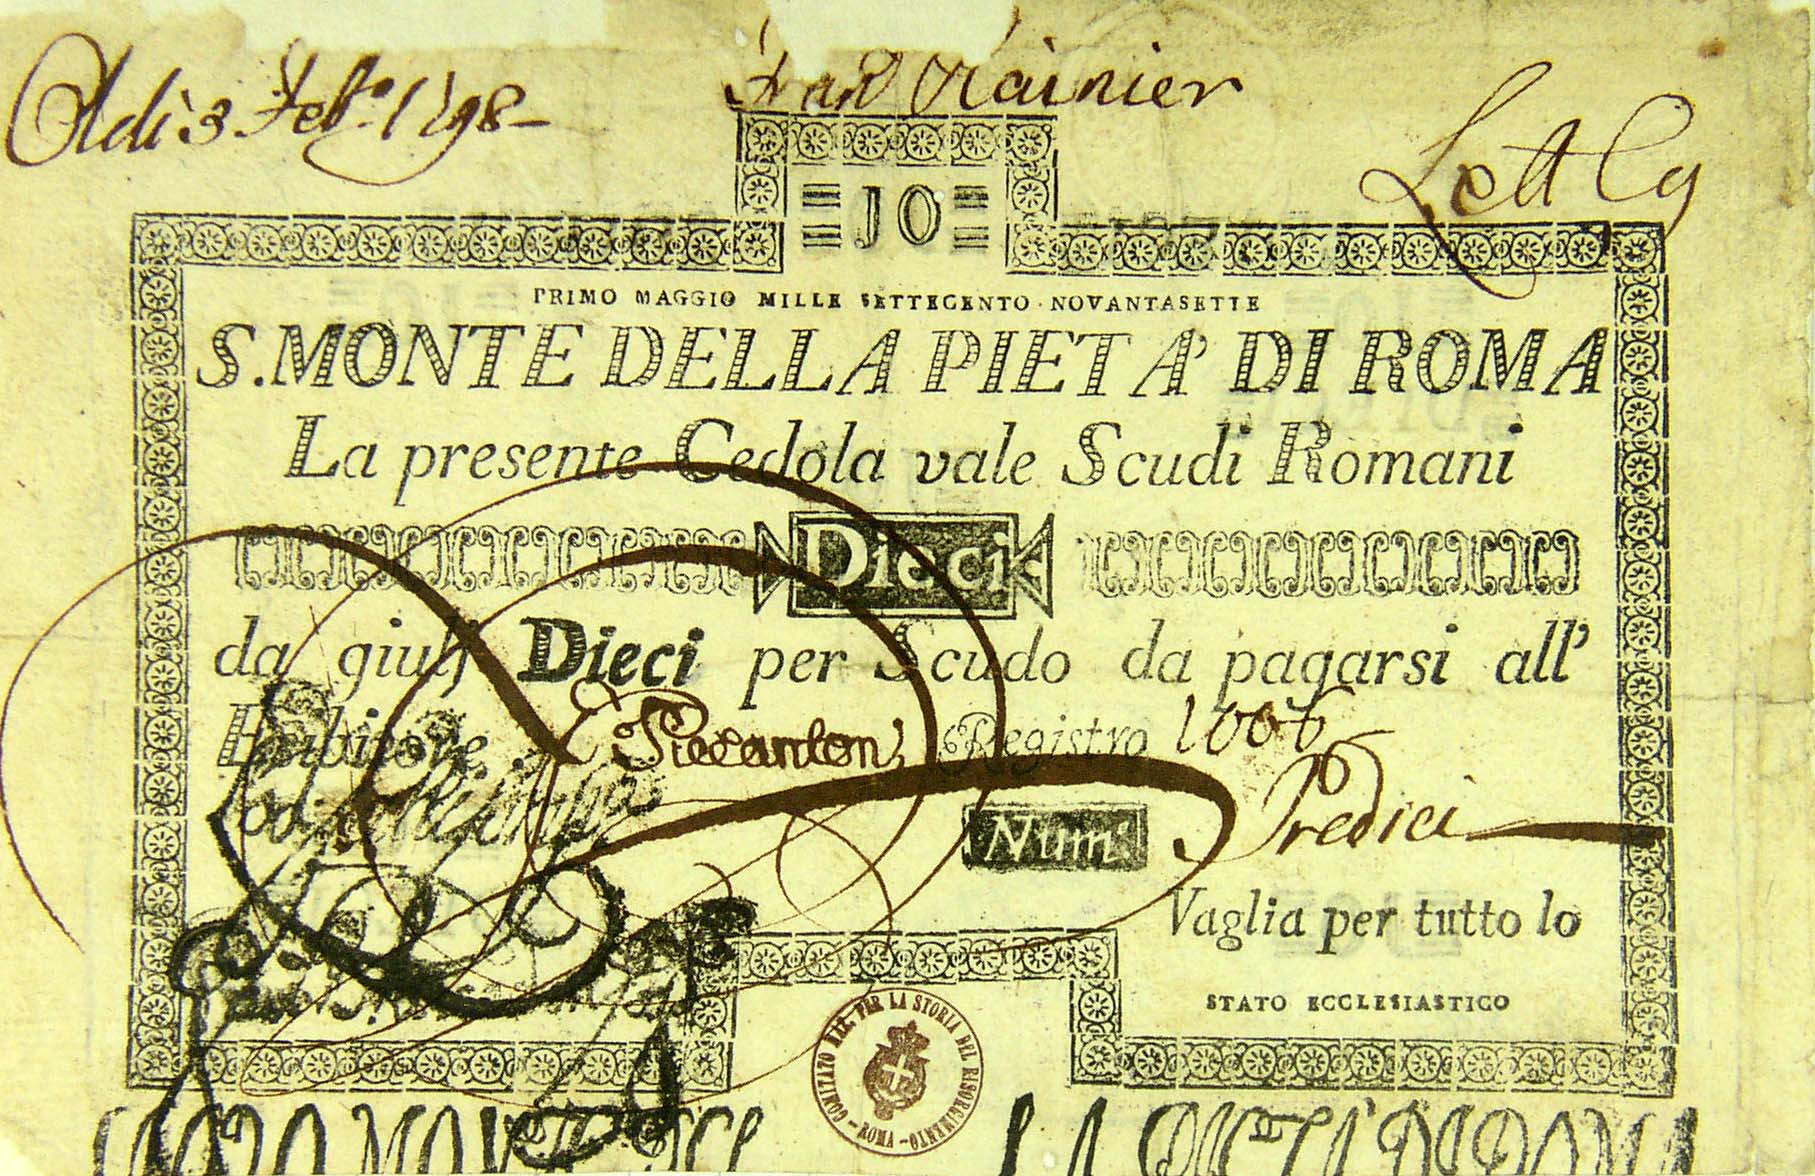 Adì 3 Feb.ro 1798
Rainier
Lett Cg
= JO =
PRIMO MAGGIO MILLE SETTECENTO NOVANTASETTE
S. MONTE DELLA PIETA' DI ROMA
La presente Cedola vale Scudi Romani
Dieci
da giulj Dieci per Scudo da pagarsi all'
Esibitore Registro 1006
Num: Tredici
Vaglia per tutto lo
STATO ECCLESIASTICO
COMITATO NAZ. PER LA STORIA DEL RISORGIMENTO - ROMA -